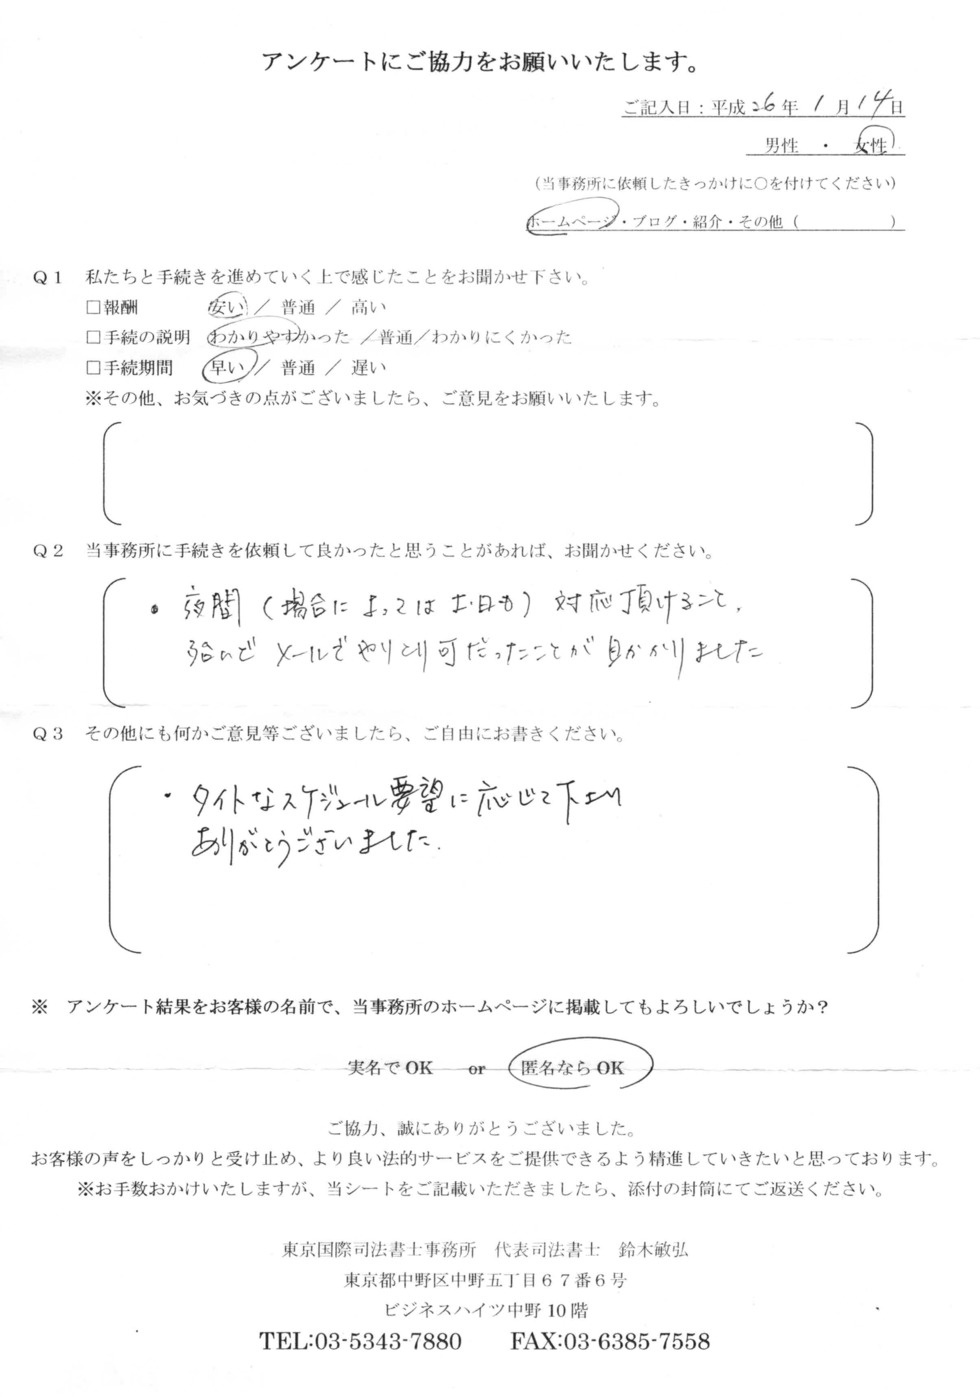 アンケートにご協力をお願いいたします。
ご記入日：平成26年1月14日
男性　・　女性
（当事務所に依頼したきっかけに○を付けてください）
ホームページ・ブログ・紹介・その他（　　　　　）
Ｑ１　私たちと手続きを進めていく上で感じたことをお聞かせ下さい。
□報酬　　安い ／ 普通 ／ 高い
□手続の説明　わかりやすかった ／普通／わかりにくかった
□手続期間　　早い ／ 普通 ／ 遅い
※その他、お気づきの点がございましたら、ご意見をお願いいたします。
Ｑ２　当事務所に手続きを依頼して良かったと思うことがあれば、お聞かせください。
・夜間（場合によっては土・日も）対応頂けること、
メールでやりとり可だったことが助かりました
Ｑ３　その他にも何かご意見等ございましたら、ご自由にお書きください。
・タイトなスケジュール要望に応じて下さり
ありがとうございました.
※　アンケート結果をお客様の名前で、当事務所のホームページに掲載してもよろしいでしょうか？
実名で OK　or　匿名なら OK
ご協力、誠にありがとうございました。
お客様の声をしっかりと受け止め、より良い法的サービスをご提供できるよう精進していきたいと思っております。
※お手数おかけいたしますが、当シートをご記載いただきましたら、添付の封筒にてご返送ください。
東京国際司法書士事務所　代表司法書士　鈴木敏弘
東京都中野区中野五丁目６７番６号
ビジネスハイツ中野 10 階
TEL:03-5343-7880　FAX:03-6385-7558